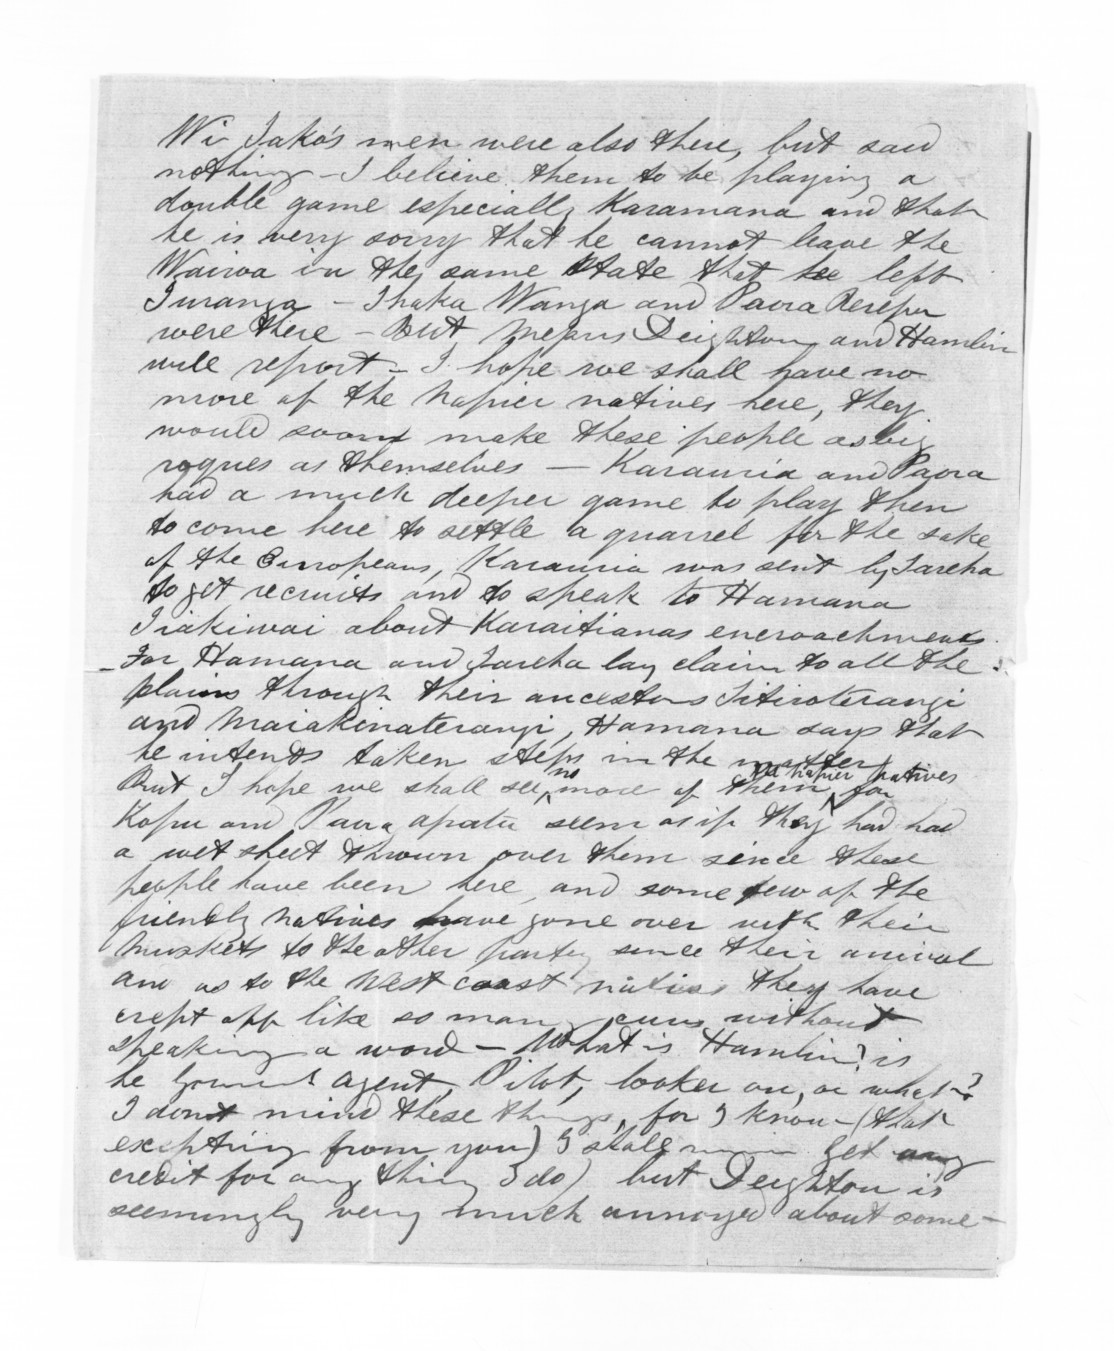 Wi Tako's men were also there, but said
nothing - I believe them to be playing a
double game especially Karamana and that
he is very sorry that he cannot leave the
Wairoa in the same state that he left
Turanga - Ihaka Wanga and Paora Rerepu
were there - But Mepus Deighton and Hamlin
will report - I hope we shall have no
more of the Napier natives here, they
would soon make these people as big
rogues as themselves - Karauria and Paora
had a much deeper game to play then
to come here to settle a quarrel for the sake
of the Europeans, Karauria was sent by Tareha
to get recruits and to speak to Hamana
Tiakiwai about Karaitianas encroachments.
For Hamana and Tareha lay claim to all the
plains through their ancestors Titiroterangi
and Maiakinaterangi, Hamana says that
he intends taken steps in the matter
But I hope we shall see no more of them the Napier natives for
Kopu and Paora apatu seem as if they had had
a wet sheet thrown over them since these
people have been here, and some few of the
friendly natives have gone over with their
muskets to the other party since their arrival
and as to the West coast natives they have
crept off like so many curs without
speaking a word - What is Hamlin? is
he Goverment Agent, Pilot, looker on, or what?
I dont mind these things, for I know (that
excepting from you) I shall never get any
credit for any thing I do) but Deighton is
seemingly very much annoyed about some-